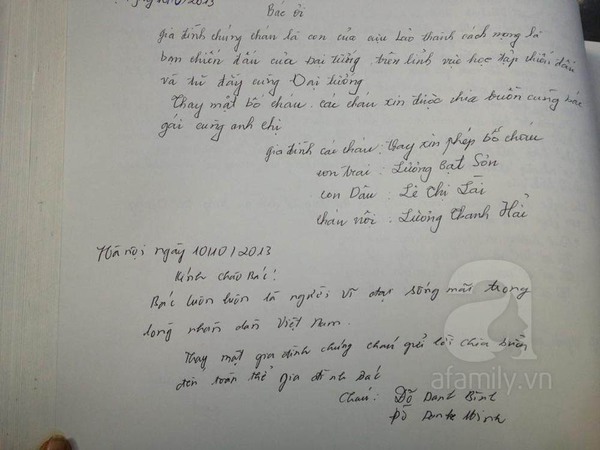 10/2013
Bác ơi
Gia đình chúng cháu là con của cựu Lão thành cách mạng là
bạn chiến đấu của Đại tướng, trên lĩnh vực học tập chiến đấu
và từ đấy cùng Đại tướng
Thay mặt bố cháu, các cháu xin được chia buồn cùng bác
gái cùng anh chị
Gia đình các cháu: thay xin phép bố cháu
con trai: Lương Đạt Sơn
con Dâu: Lê Thị Tài
cháu nội: Lương Thanh Hải
Hà nội ngày 10/10/2013
Kính chào Bác!
Bác luôn luôn là người vĩ đại sống mãi trong
lòng nhân dân Việt Nam.
Thay mặt gia đình chúng cháu gửi lời chia buồn
đến toàn thể gia đình Bác
Cháu: Đỗ Danh Bình
Đỗ Danh Minh
a
afamily.vn